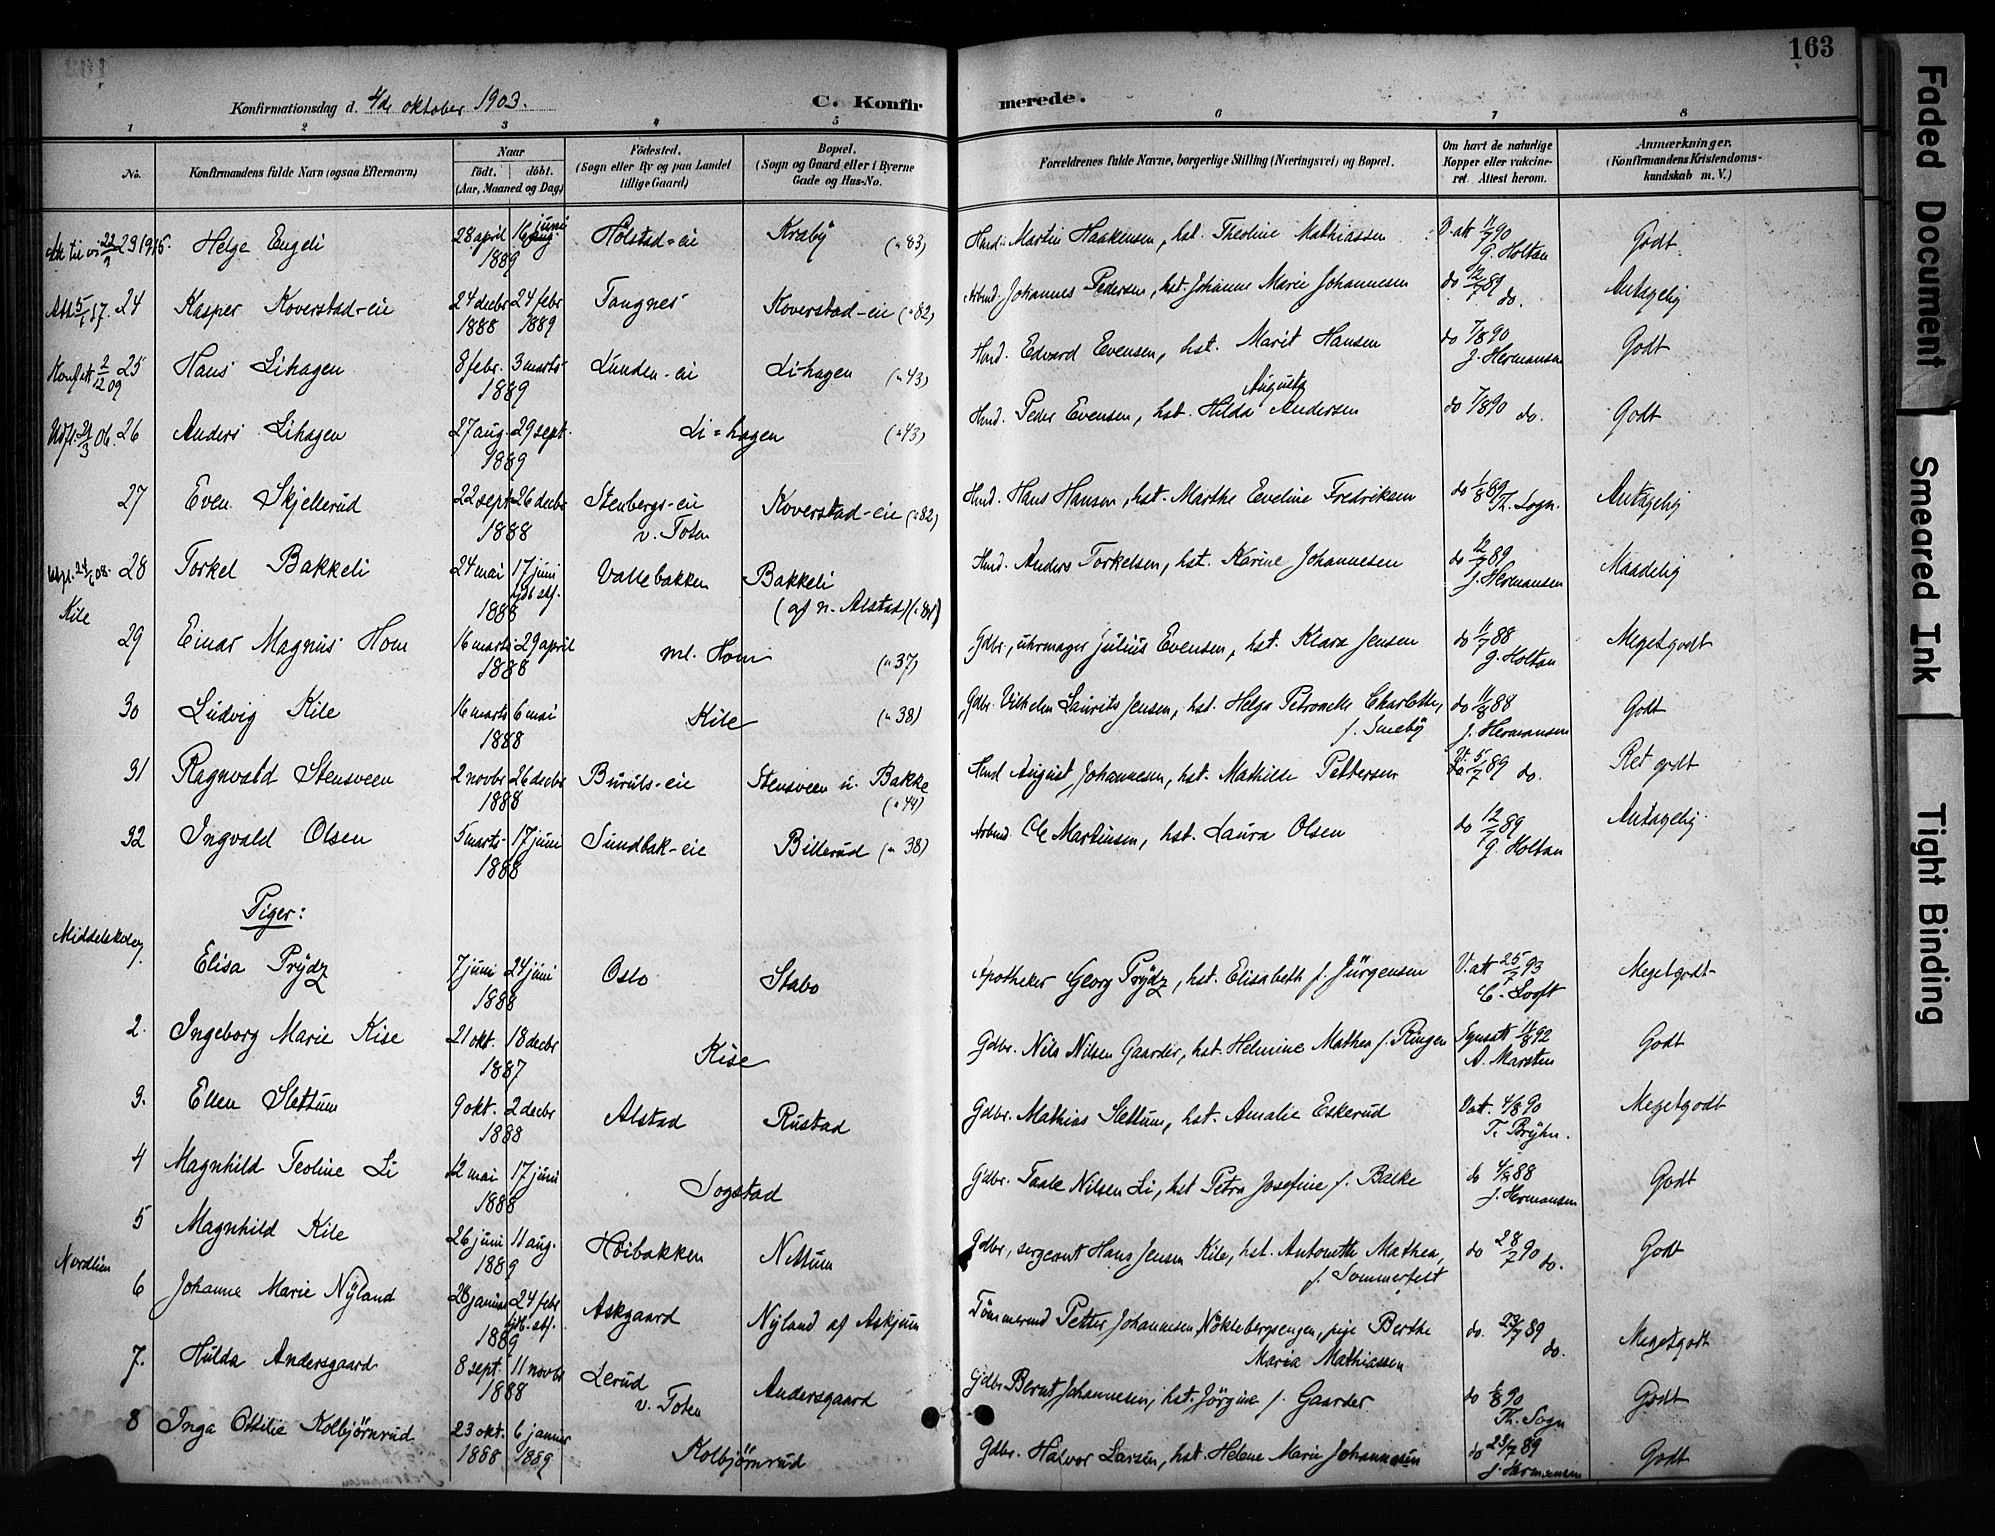 163
Konfirmationsdag d. 4de oktober 1903.
C. Konfirmerede.
1 2 3 4 5 6 7 8
No.
Konfirmandens fulde Navn (ogsaa Efternavn)
Naar
født. døbt.
(Aar, Maaned og Dag)
Fødested.
(Sogn eller By og paa Landet
tillige Gaard)
Bopæl.
(Sogn og Gaard eller i Byerne
Gade og Hus-No.
Forældrenes fulde Navne, borgerlige Stilling (Næringsvei) og Bopæl.
Om havt de naturlige
Kopper eller vakcine-
ret. Attest herom.
Anmærkninger.
(Konfirmandens Kristendoms-
kundskab m. V.)
23 Helge Engeli 28 april 16 juni 1889 Hølstad-eie Kraby (" 83) Husmd. Martin Haakensen, hst. Theoline Mathiassen V. att 11/7 90 G. Holtan Godt
Att 5/1 17. 24 Kasper Koverstad-eie 24 decbr 1888 24 febr 1889 Tangnes Koverstad-eie (" 82) Arbmd. Johannes Pedersen, hst. Johanne Marie Johannesen do 12/7 89 do. Antagelig
Konf att 2/12 09 25 Hans Lihagen 8 febr. 3 marts 1889 Lunden-eie Li-hagen (" 43) Hmd. Edvard Evensen, hst. Marit Hansen do 7/8 90 J. Hermansen Godt
Udfl. 21/3 06. 26 Anders Lihagen 27 aug. 29 sept. 1889 Li-hagen (" 43) Hmd. Peder Evensen, hst. Hilda Augusta Andersen do 7/8 90 do. Godt
27 Even Skjellerud 22 sept 26 decbr 1888 Stenbergs-eie v. Toten Koverstad-eie (" 82) Hmd. Hans Hansen, hst. Marthe Eveline Fredriksen do 1/8 89 Th. Sogn. Antagelig
28 Torkel Bakkeli 24 mai 17 juni 1888 Vallebakken Bakkeli (af n. Alstad) (" 81) Hmd. Anders Torkelsen, hst. Karine Johannesen do 12/7 89 J. Hermansen Maadelig
Kile
29 Einar Magnus Hom 16 marts 29 april 1888 ml. Hom (" 37) Gdbr., uhrmager Julius Evensen, hst. Klara Jensen do 11/7 88 G. Holtan Megetgodt
30 Ludvig Kile 16 marts 6 mai 1888 Kile (" 38) Gdbr. Vilhelm Laurits Jensen, hst. Helga Petronelle Charlotte, f. Smeby do 11/8 88 J. Hermansen Godt
31 Ragnvald Stensveen 2 novbr 26 decbr 1888 Buruls-eie Stensveen u. Bakke (" 44) Hmd August Johannesen, hst. Mathilde Pettersen 5/7 89 do. Ret godt
32 Ingvald Olsen 5 marts 17 juni 1888 Sundbak-eie Billerud (" 38) Arbmd. Ole Martinsen, hst. Laura Olsen do 12/7 89 G. Holtan Antagelig
Piger:
Middelskoleex.
Elisa Prydz 7 juni 24 juni 1888 Oslo Stabo Apotheker Georg Prydz, hst. Elisabeth f. Jürgensen V. att 25/7 93 C. Looft Megetgodt
2. Ingeborg Marie Kise 21 okt. 18 decbr 1887 Kise Gdbr. Nils Nilsen Gaarder, hst. Helmine Mathea f. Ringen Synsatt 11/8 92 A. Marsten Godt
3. Ellen Slettum 9 okt. 2 decbr 1888 Alstad Rustad Gdbr. Mathias Slettum, hst. Amalie Eskerud V att. 4/8 90 T. Bryhn. Megetgodt
4 Magnhild Teoline Li 12 mai 17 juni 1888 Sogstad Gdbr. Taale Nilsen Li, hst Petra Josefine f. Balke do 4/9 88 J. Hermansen Godt
5 Magnhild Kile 26 juni 11 aug. 1889 Høibakken Nettum Gdbr., sergeant Hans Jensen Kile, hst. Antonette Mathea, f. Sommerfelt do 28/7 90 do. Godt
Nordlien
6 Johanne Marie Nyland 28 januar 24 febr 1889 Askgaard Nyland af Askjum Tømmermd Petter Johannesen, Nøklebergsengen, pige Berthe Maria Mathiassen do. 23/7 89 do. Megetgodt
7. Hulda Andersgaard 8 sept. 11 novbr 1888 Lerud v. Toten Andersgaard Gdbr Bernt Johannesen, hst. Jørgine f. Gaarder do 1/8 90 Th. Sogn Godt
8 Inga Otilie Kolbjørnrud 23 okt. 1888 6 januar 1889 Kolbjørnrud Gdbr. Halvor Larsen, hst. Helene Marie Johannesen do 23/7 89 J. Hermansen Godt
Faded Document
Smeared Ink
Tight Binding